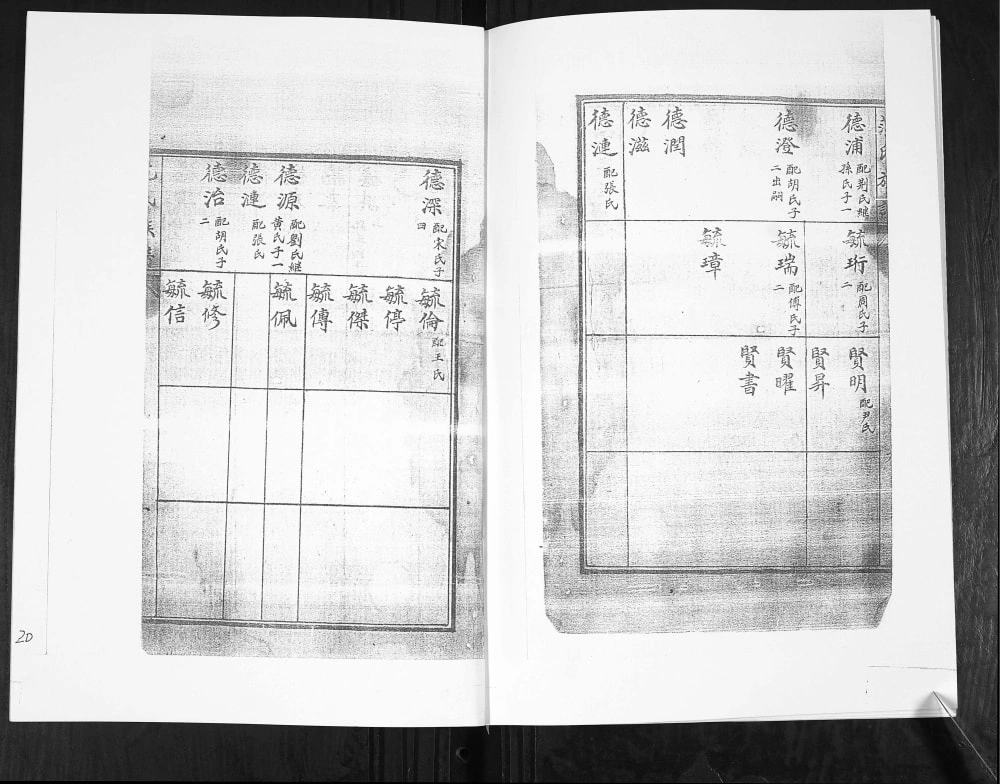 德浦 配劉氏繼
孫氏子一
德澄 配胡氏子
二出嗣
德潤
德滋
德漣 配張氏
毓珩 配周氏子
二
毓瑞 配傅氏子
二
毓璋
賢明 配尹氏
賢昇
賢曜
賢書
德深 配宋氏子
四
德源 配劉氏繼
黃氏子一
德漣 配張氏
德治 配胡氏子
二
毓倫 配王氏
毓停
毓傑
毓傳
毓佩
毓修
毓信
20